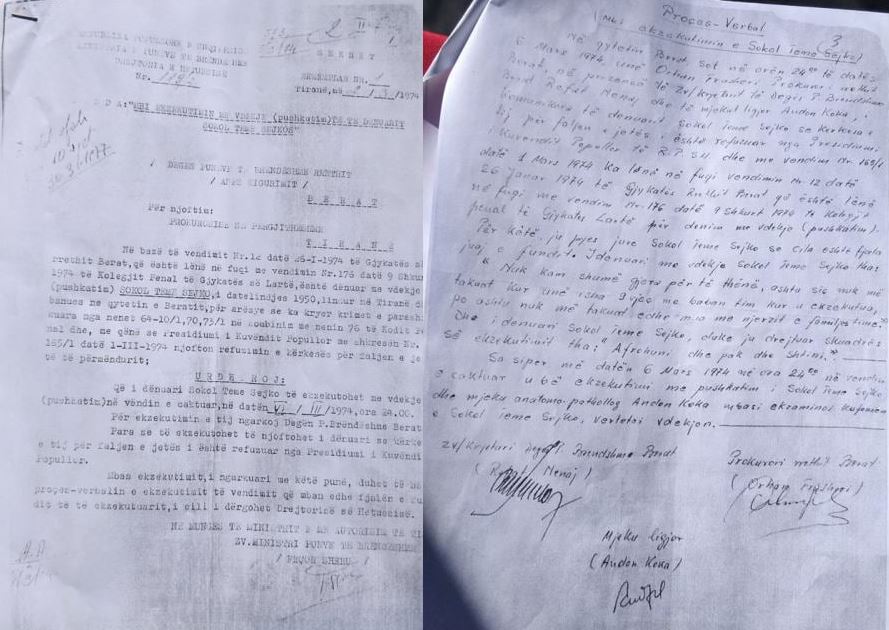 REPUBLIKA POPULLORE E SHQIPERISE
MINISTRIA E PUNEVE TE BRENDSHME
DREJTORIA E HETUESISE
Nr.
SEKRET
EKZEMPLAR NR. 1
Tiranë, më 2/3/1974
"MBI EKZEKUTIMIN ME VDEKJE (pushkatim) TË TË DENUARIT
SOKOL TEME SEJKOS"
DEGES PUNEVE TE BRENDESHME RRETHIT
/ ANES SIGURIMIT /
B E R A T
Për njoftim:
PROKURORISE SE PERGJITHESHME
T I R A N E
Në bazë të vendimit Nr.12 datë 26-I-1974 të Gjykatës së
rrethit Berat, që është lënë në fuqi me vendimin Nr.176 datë 9 Shkur
1974 të Kolegjit Penal të Gjykatës së Lartë, është dënuar me vdekje
(pushkatim) SOKOL TEME SEJKO, i datelindjes 1950, lindur në Tiranë d
banues në qytetin e Beratit, për arësye se ka kryer krimet e parësh
kuara nga nenet 64-10/1, 70, 73/1 në kombinim me nenin 76 të Kodit P
nal dhe, me qënë se Presidiumi i Kuvëndit Popullor me shkresën Nr.
165/1 datë 1-III-1974 njofton refuzimin e kërkesës për faljen e je
të të përmëndurit;
U R D H Ë R O J :
që i dënuari Sokol Teme Sejko të ekzekutohet me vdekje
(pushkatim) në vëndin e caktuar, në datën VI / III /1974, ora 24.00.
Për ekzekutimin e tij ngarkoj Degën P.Brëndëshme Berat
Para se të ekzekutohet të njoftohet i dënuari se kërke
e tij për faljen e jetës i është refuzuar nga Presidiumi i Kuvënd
Popullor.
Mbas ekzekutimit, i ngarkuari me këtë punë, duhet të
proçes-verbalin e ekzekutimit të vendimit që mban edhe fjalën e
të të ekzekutuarit, i cili i dërgohet Drejtorisë së Hetuesisë.
NE MUNGESE TE MINISTRIT E ME AUTORIZIM TE TI
ZV.MINISTRI PUNEVE TE BRENDESHME
/ FEÇOR SHEHU /
3
Proçes-Verbal
(Mbi ekzekutimin e Sokol Teme Sejko)
Në qytetin Berat, sot në orën 24°° të datës
6 Mars 1974, unë Orhan Frashëri, Prokurori rrethit
Berat, në prezencë të Zv/Kryetarit të Degës P. Brendshme
Berat Refat Menaj dhe të mjekut ligjor Andon Koka,
komunikova të dënuarit Sokol Teme Sejko se kërkesa e
tij për faljen e jetës i është refuzuar nga Presidiumi
i Kuvendit Popullor të R.P.SH. dhe me vendim Nr. 165/1
datë 1 Mars 1974 ka lënë në fuqi vendimin Nr. 12 datë
26 janar 1974 të Gjykatës Rrethit Berat që është lënë
në fuqi me vendim Nr. 176 datë 9 shkurt 1974 të Kolegjit
penal të Gjykatës Lartë për denim me vdekje (pushkatim).
Për këtë, ju pyes juve Sokol Teme Sejko se cila është fjala
juaj e fundit. I denuari me vdekje Sokol Teme Sejko tha:
" Nuk kam shumë gjëra për të thënë, ashtu siç nuk më
takuat kur unë isha 9 vjeç me baban tim kur u ekzekutua,
po ashtu nuk më takuat edhe mua me njerzit e familjes time."
Dhe i denuari Sokol Teme Sejko, duke ju drejtuar skuadrës
së ekzekutimit tha: "Afrohuni edhe pak dhe shtini."
Sa sipër më datën 6 Mars 1974 në ora 24°° në vendin
e caktuar u bë ekzekutimi me pushkatim i Sokol Teme Sejko
dhe mjeku anatomo-patholog Andon Koka mbasi ekzaminoi kufomën
e Sokol Teme Sejko, vërtetoi vdekjen.
Zv/Kryetari Degës P. Brendshme Berat
(Refat Menaj)
Prokurori rrethit Berat
(Orhan Frashëri)
Mjeku ligjor
(Andon Koka)